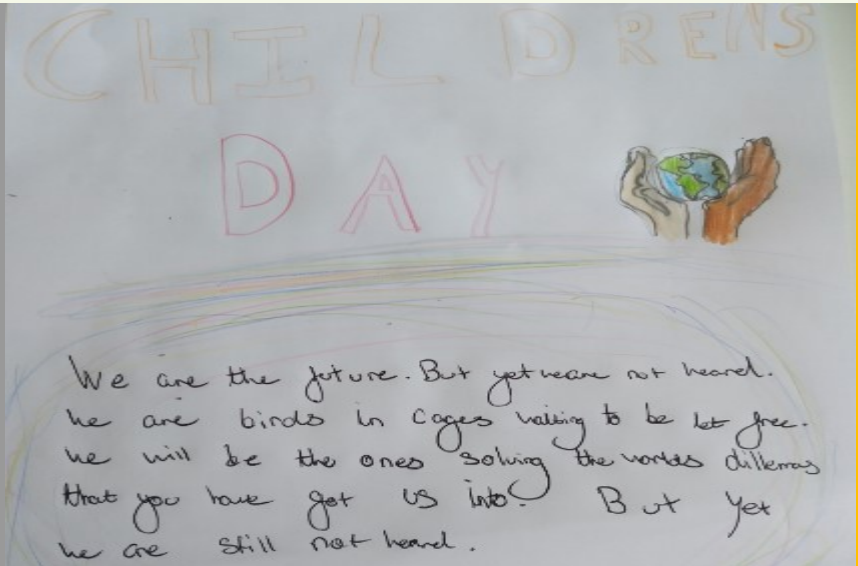 CHILDRENS
DAY
We are the future. But yet we are not heard.
we are birds in cages waiting to be let free.
we will be the ones solving the worlds dillemas
that you have got us into! But yet
we are still not heard.